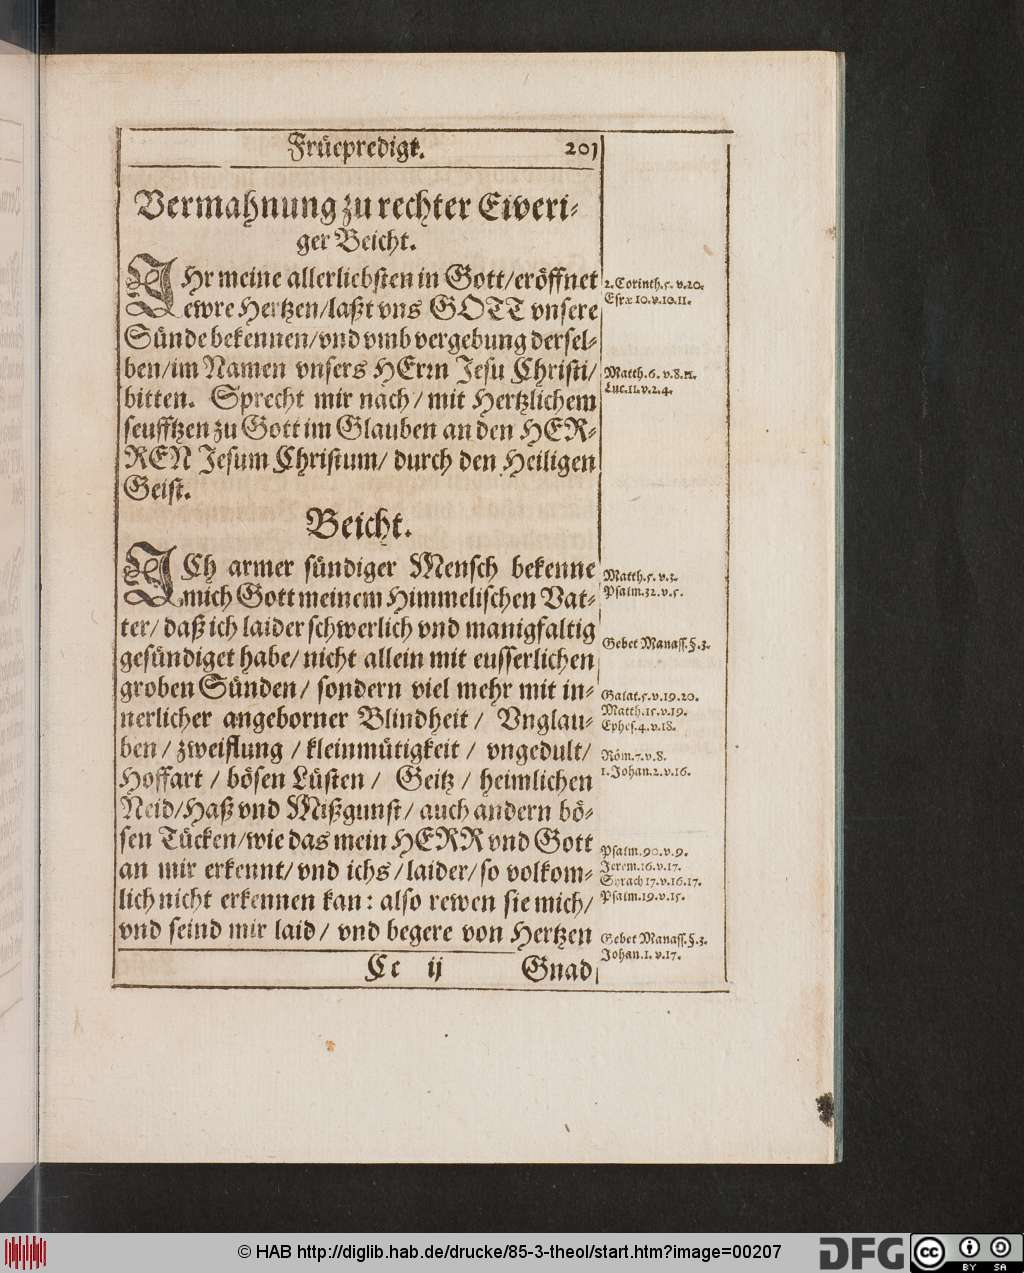 Früepredigt. 203
Vermahnung zu rechter Eiveri-
ger Beicht.
IHr meine allerliebsten in Gott/eröffnet
ewre Hertzen/laßt vns GOTT vnsere
Sünde bekennen/vnd vmb vergebung dersel-
ben/im Namen vnsers HErrn Jesu Christi/
bitten. Sprecht mir nach/mit Hertzlichem
seufftzen zu Gott im Glauben an den HER-
REN Jesum Christum/ durch den Heiligen
Geist.
2.Corinth.5.v.20.
Esræ 10.v.10.11.
Matth.6.v.8.12.
Luc.11.v.2.4.
Beicht.
ICh armer sündiger Mensch bekenne
mich Gott meinem Himmelischen Vat-
ter/ daß ich laider schwerlich vnd manigfaltig
gesündiget habe/ nicht allein mit eusserlichen
groben Sünden/ sondern viel mehr mit in-
nerlicher angeborner Blindheit/ Vnglau-
ben/ zweiflung/kleinmütigkeit/ vngedult/
Hoffart/ bösen Lüsten/ Geitz/ heimlichen
Neid/Haß vnd Mißgunst/ auch andern bö-
sen Tücken/wie das mein HERR vnd Gott
an mir erkennt/ vnd ichs/laider/ so volkom-
lich nicht erkennen kan: also rewen sie mich/
vnd seind mir laid/ vnd begere von Hertzen
Matth.5.v.3.
Psalm.32.v.5.
Gebet Manass.§.3.
Galat.5.v.19.20.
Matth.15.v.19.
Ephes.4.v.18.
Röm.7.v.8.
1.Johan.2.v.16.
Psalm.90.v.9.
Jerem.16.v.17.
Syrach 17.v.16.17.
Psalm.19.v.15.
Gebet Manass.§.3.
Johan.1.v.17.
Cc ij Gnad
© HAB http://diglib.hab.de/drucke/85-3-theol/start.htm?image=00207
DFG
cc BY SA